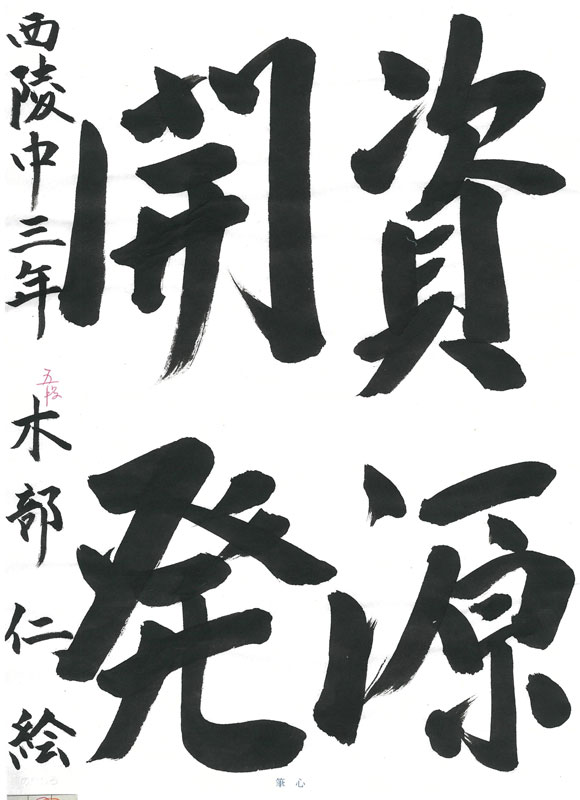 資源
開発
西陵中三年 木部仁絵
五段
筆心